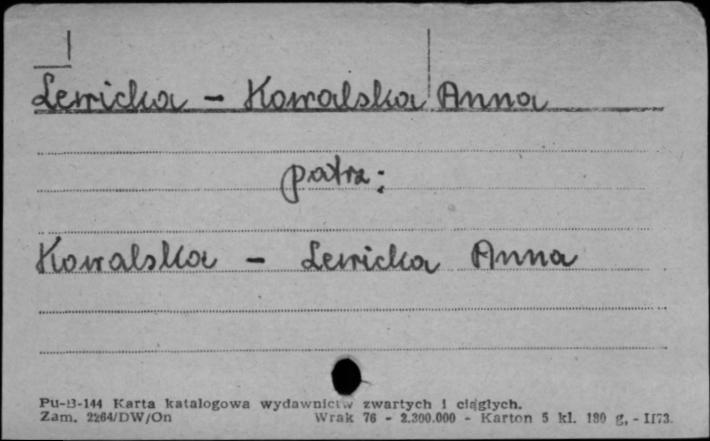 Lewicka - Kowalska Anna
patrz:
Kowalska - Lewicka Anna
Pu-B-144 Karta katalogowa wydawnictw zwartych i ciągłych.
Zam. 2264/DW/On Wrak 76 - 2.300.000 - Karton 5 kl. 180 g, - II73.